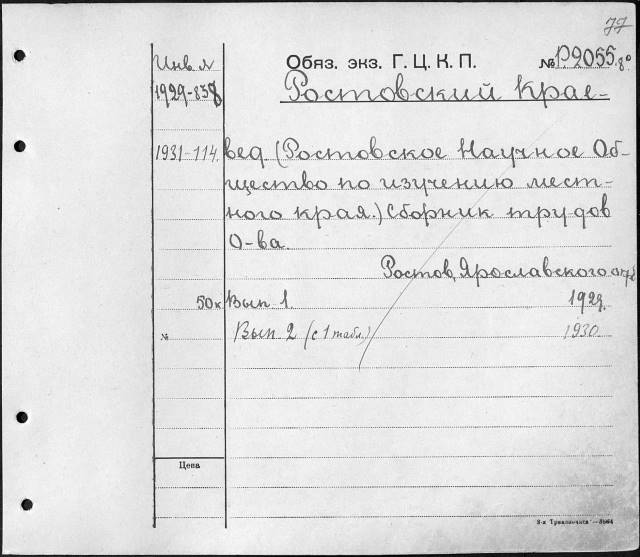 77
Инв. №
Обяз. экз. Г. Ц. К. П. № Р.2055. 8°
1929-838
Ростовский Крае-
1931-114.
вед. (Ростовское Научное Об-
щество по изучению мест-
ного края.) Сборник трудов
О-ва.
Ростов, Ярославского
50к Вып 1. 1929.
№ Вып 2 (с 1 табл.) 1930.
Цена